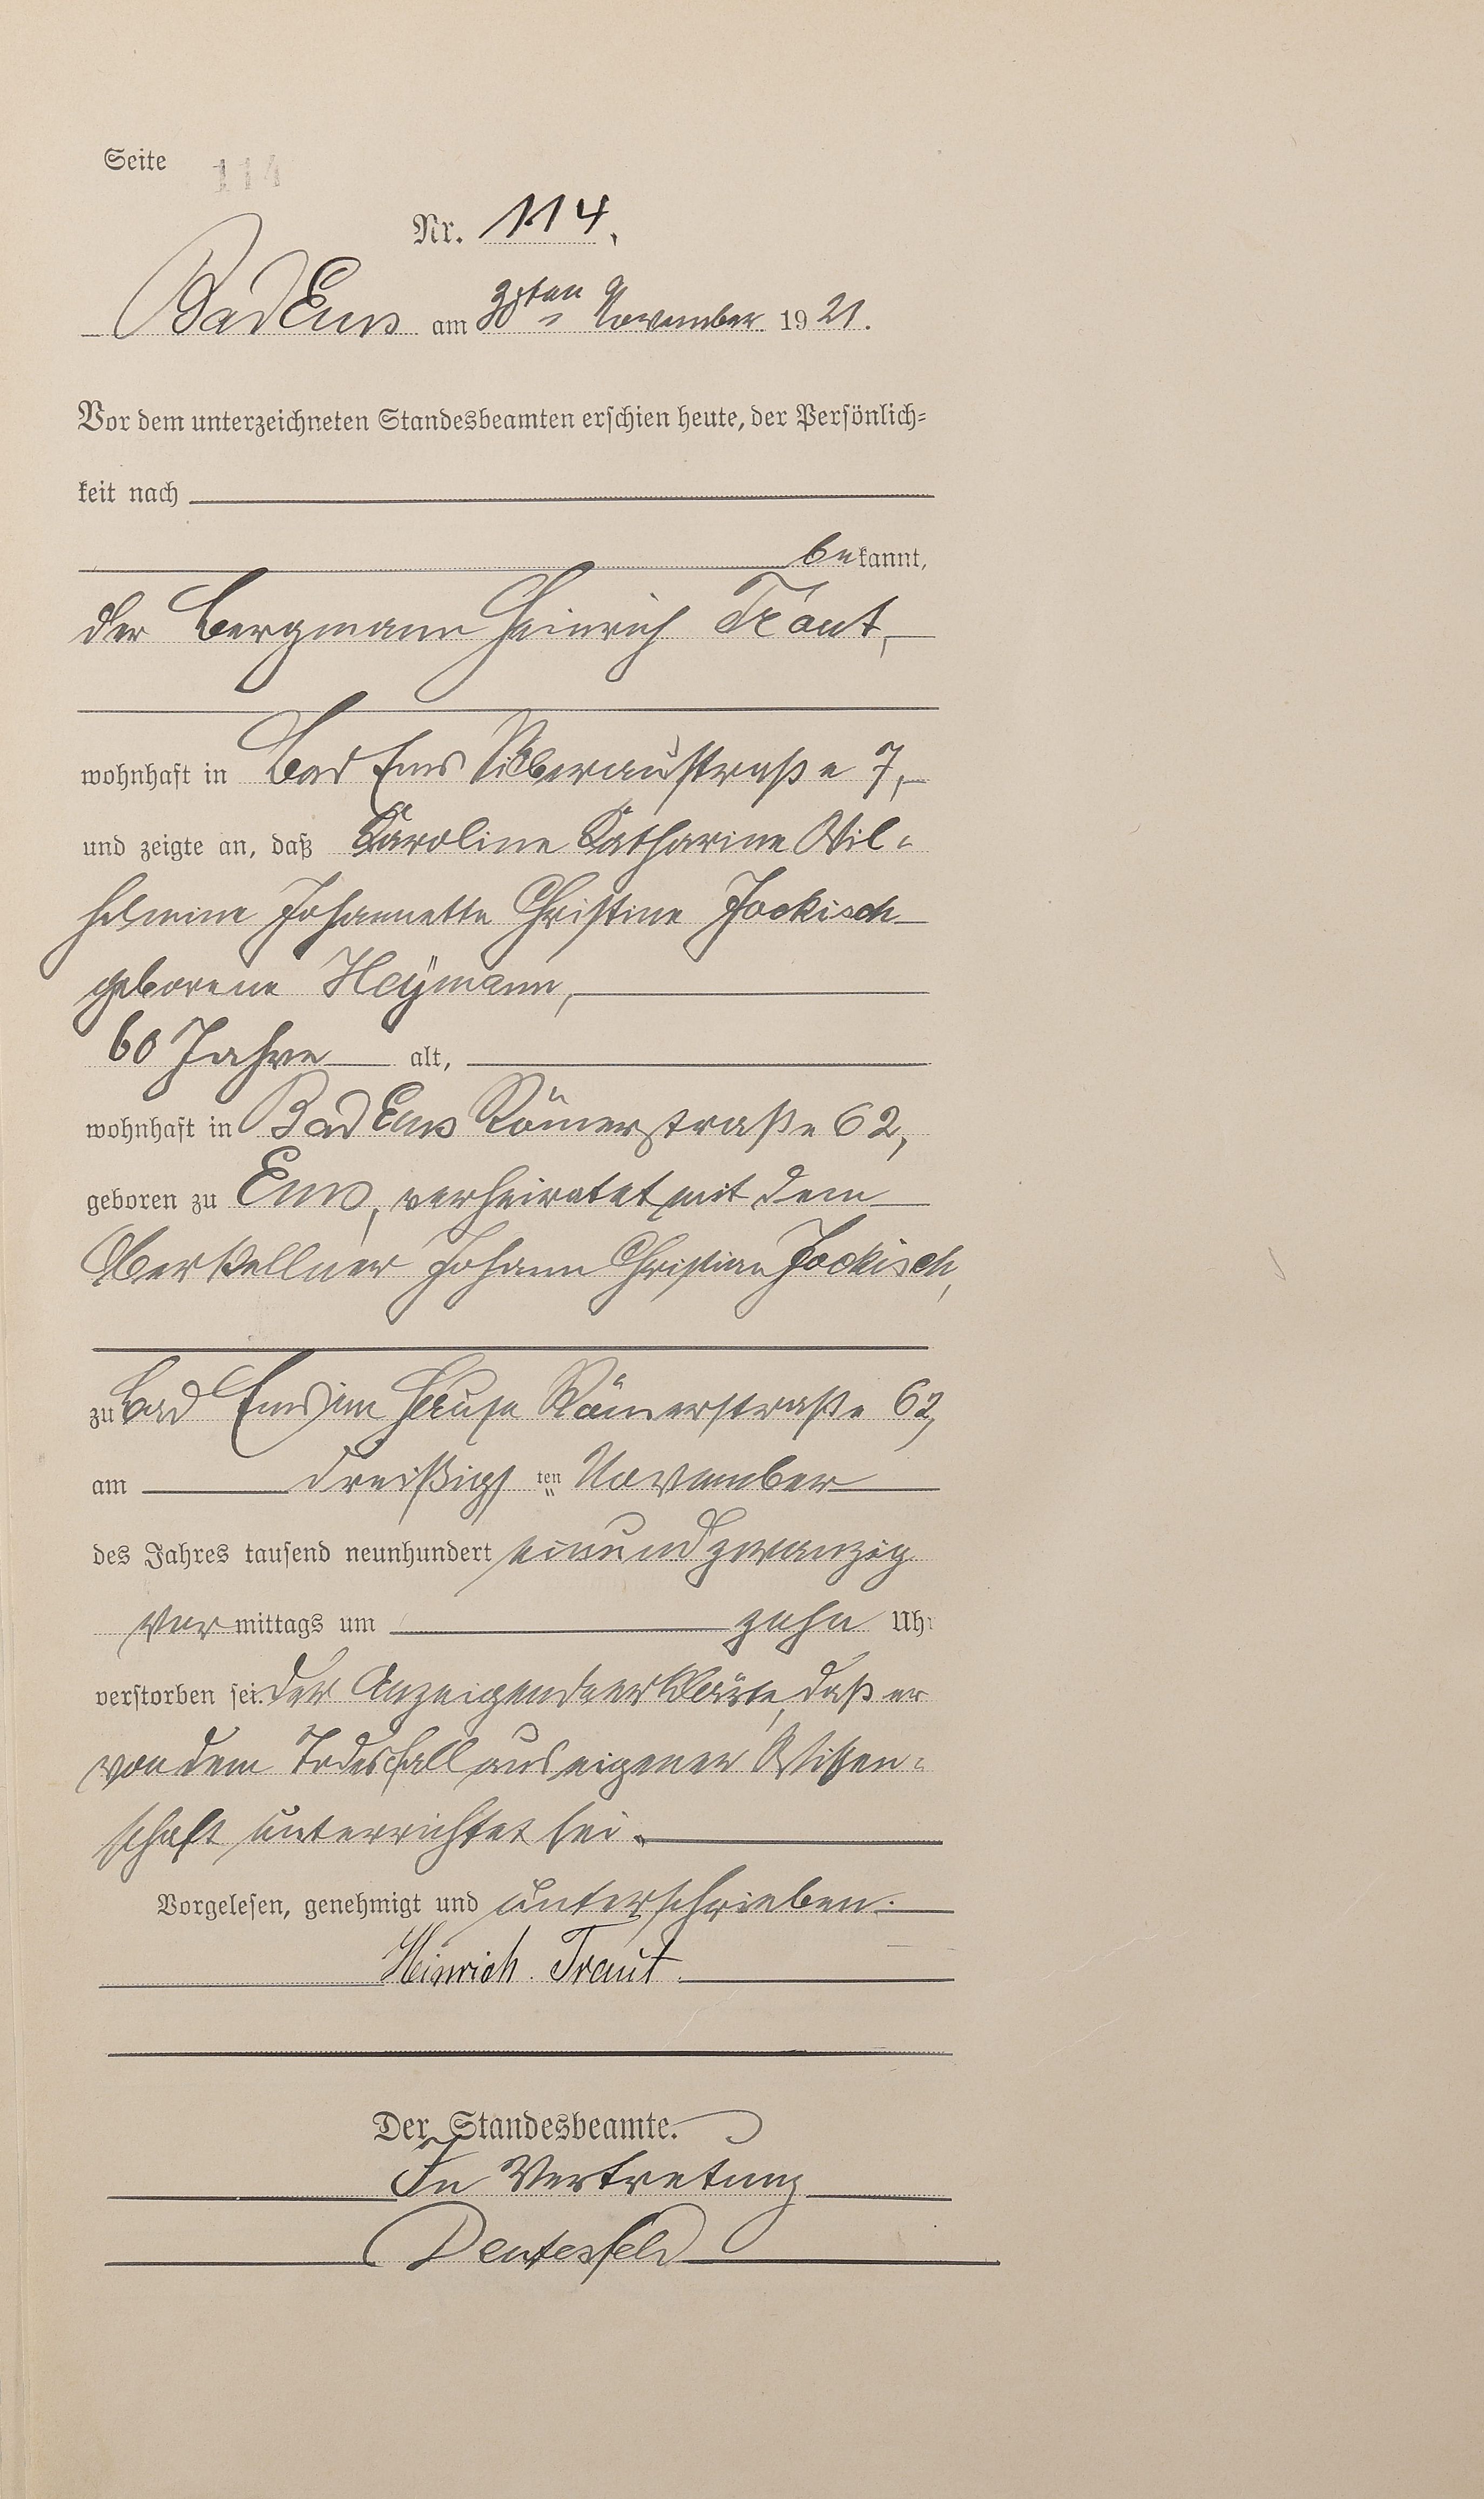 Seite 114
Nr. 114.
Bad Ems am 30ten November 1921.
Vor dem unterzeichneten Standesbeamten erschien heute, der Persönlich-
keit nach
bekannt,
der Bergmann Heinrich Traut,
wohnhaft in Bad Ems Silberaustraße 7,
und zeigte an, daß Karoline Katharine Wil-
helmine Johannette Christine Jockisch
geborene Heymann,
60 Jahre alt,
wohnhaft in Bad Ems Römerstraße 62,
geboren zu Ems, verheiratet mit dem
Oberkellner Johann Christian Jockisch,
zu Bad Ems im Hause Römerstraße 62,
am dreißigsten November
des Jahres tausend neunhundert einundzwanzig
vormittags um zehn Uhr
verstorben sei. Der Anzeigende erklärte, daß er
von dem Todesfall aus eigener Wissen-
schaft unterrichtet sei.
Vorgelesen, genehmigt und unterschrieben.
Heinrich Traut.
Der Standesbeamte.
In Vertretung